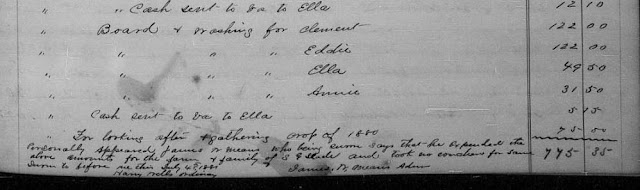 " " Cash sent to Va to Ella 12 10
" Board & Washing for Clement 122 00
" " " " Eddie 122 00
" " " " Ella 49 50
" " " " Annie 31 50
" Cash sent to Va to Ella 5 15
" For looking after & gathering crop of 1880 75 50
Personally appeared James M Means who being sworn says that he expended the
above amounts for the farm & family of S G and took no vouchers for same 775 35
Sworn to before me this July 4th 1881 James M Means Admr
Ordinary